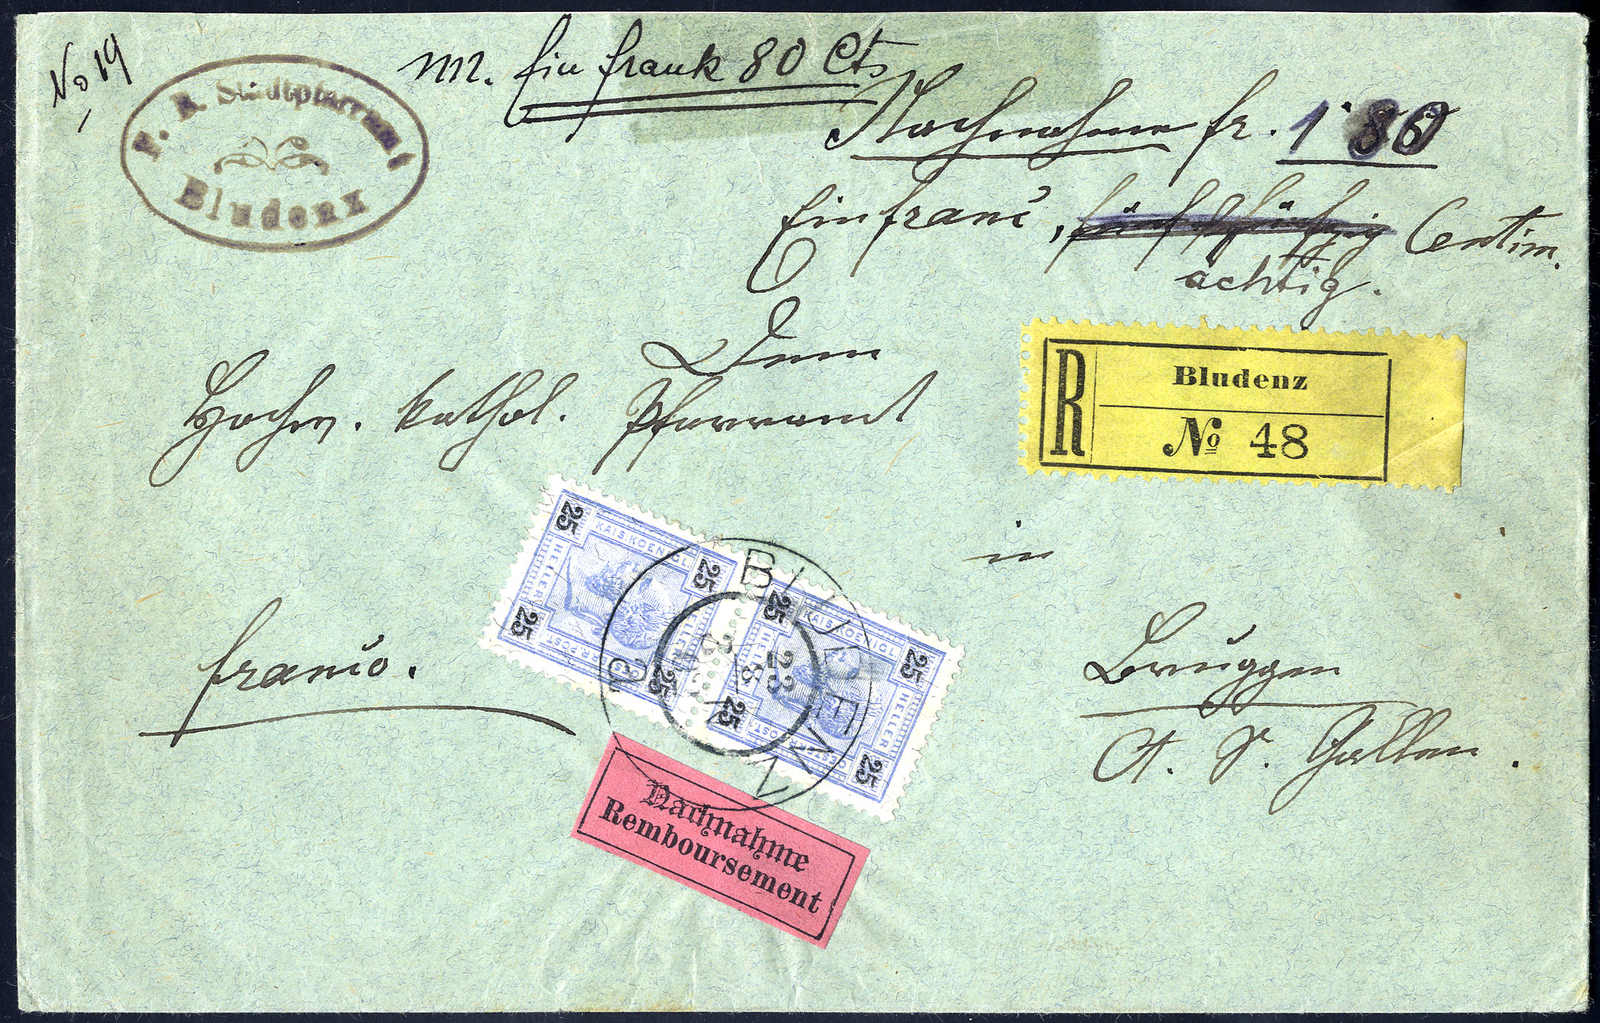 No 19
F. K. Stadtpfarramt
Bludenz
m. Ein frank 80 Cts
Nachnahme fr. 1·80
Ein franc, fünfzig Centim.
achtig.
Dem
Hochw. kathol. Pfarramt
R
Bludenz
No 48
in
franco.
Bruggen
Ct. St. Gallen.
25 25 25 25
KAIS. KOENIGL.
HELLER HELLER
25 25 25 25
KAIS. KOENIGL.
HELLER HELLER
OESTERR. POST
BLUDENZ
23
8
a
Nachnahme
Remboursement